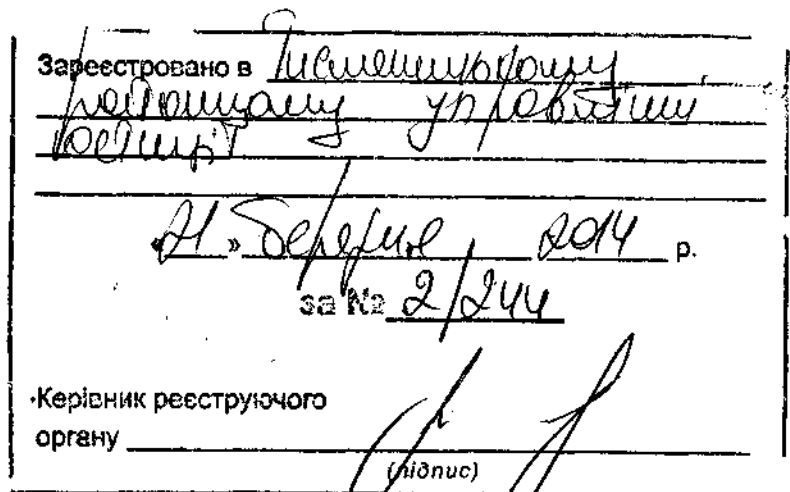 Зареєстровано в Тисменицькому
районному управлінні
юстиції
«21» березня 2014 р.
за № 2/244
Керівник реєструючого
органу
(підпис)